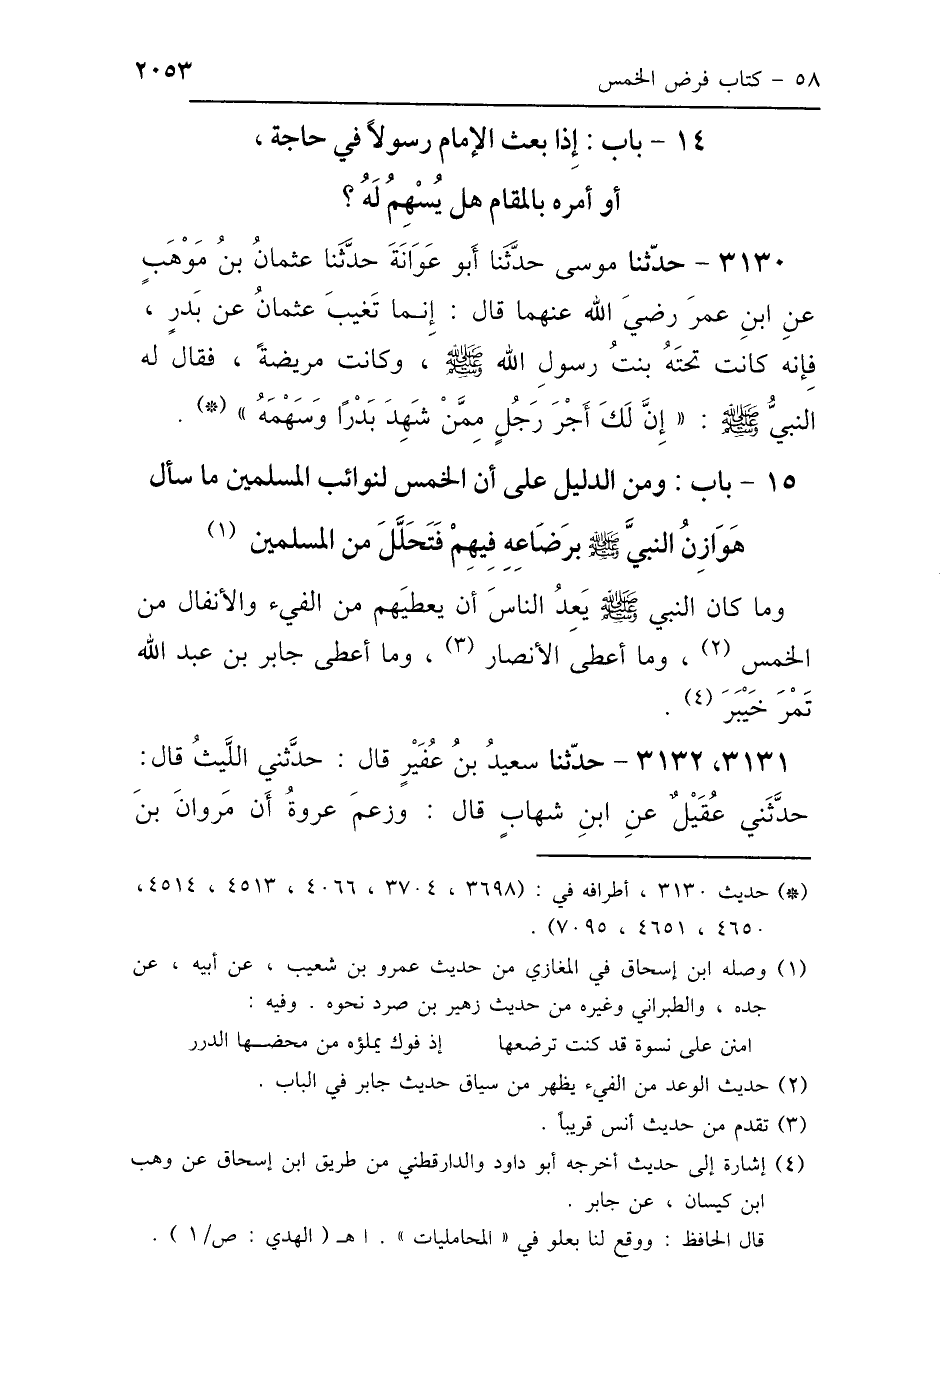 ٥٨ - كتاب فرض الخمس ٢٠٥٣
١٤ - باب : إذا بعث الإمام رسولاً في حاجة ،
أو أمره بالمقام هل يُسْهِمُ لَهُ ؟
٣١٣٠ - حدّثنا موسى حدَّثَنا أبو عَوَانَةَ حدَّثَنا عثمانُ بنُ مَوْهَبٍ
عنِ ابنِ عمرَ رضيَ الله عنهما قال : إنما تَغيبَ عثمانُ عن بَدرٍ ،
فإنه كانت تحتَهُ بنتُ رسولِ الله ﷺ ، وكانت مريضةً ، فقال له
النبيُّ ﷺ : « إِنَّ لَكَ أَجْرَ رَجُلٍ مِمَّنْ شَهِدَ بَدْرًا وَسَهْمَهُ » (*) .
١٥ - باب : ومن الدليل على أن الخمس لنوائب المسلمين ما سأل
هَوَازِنُ النبيَّ ﷺ برَضَاعِهِ فِيهِمْ فَتَحَلَّلَ من المسلمين (١)
وما كان النبي ﷺ يَعِدُ الناسَ أن يعطيَهم من الفيء والأنفال من
الخمس (٢) ، وما أعطى الأنصار (٣) ، وما أعطى جابر بن عبد الله
تَمْرَ خَيْبَرَ (٤) .
٣١٣١، ٣١٣٢ - حدّثنا سعيدُ بنُ عُفَيْرٍ قال : حدَّثني اللَّيثُ قال:
حدَّثَني عُقَيْلٌ عنِ ابنِ شهابٍ قال : وزعمَ عروةُ أن مَروانَ بنَ
(*) حديث ٣١٣٠ ، أطرافه في : (٣٦٩٨ ، ٣٧٠٤ ، ٤٠٦٦ ، ٤٥١٣ ، ٤٥١٤،
٤٦٥٠ ، ٤٦٥١ ، ٧٠٩٥) .
(١) وصله ابن إسحاق في المغازي من حديث عمرو بن شعيب ، عن أبيه ، عن
جده ، والطبراني وغيره من حديث زهير بن صرد نحوه . وفيه :
امنن على نسوة قد كنت ترضعها إذ فوك يملؤه من محضها الدرر
(٢) حديث الوعد من الفيء يظهر من سياق حديث جابر في الباب .
(٣) تقدم من حديث أنس قريباً .
(٤) إشارة إلى حديث أخرجه أبو داود والدارقطني من طريق ابن إسحاق عن وهب
ابن كيسان ، عن جابر .
قال الحافظ : ووقع لنا بعلو في « المحامليات » . ا هـ ( الهدي : ص/١ ) .